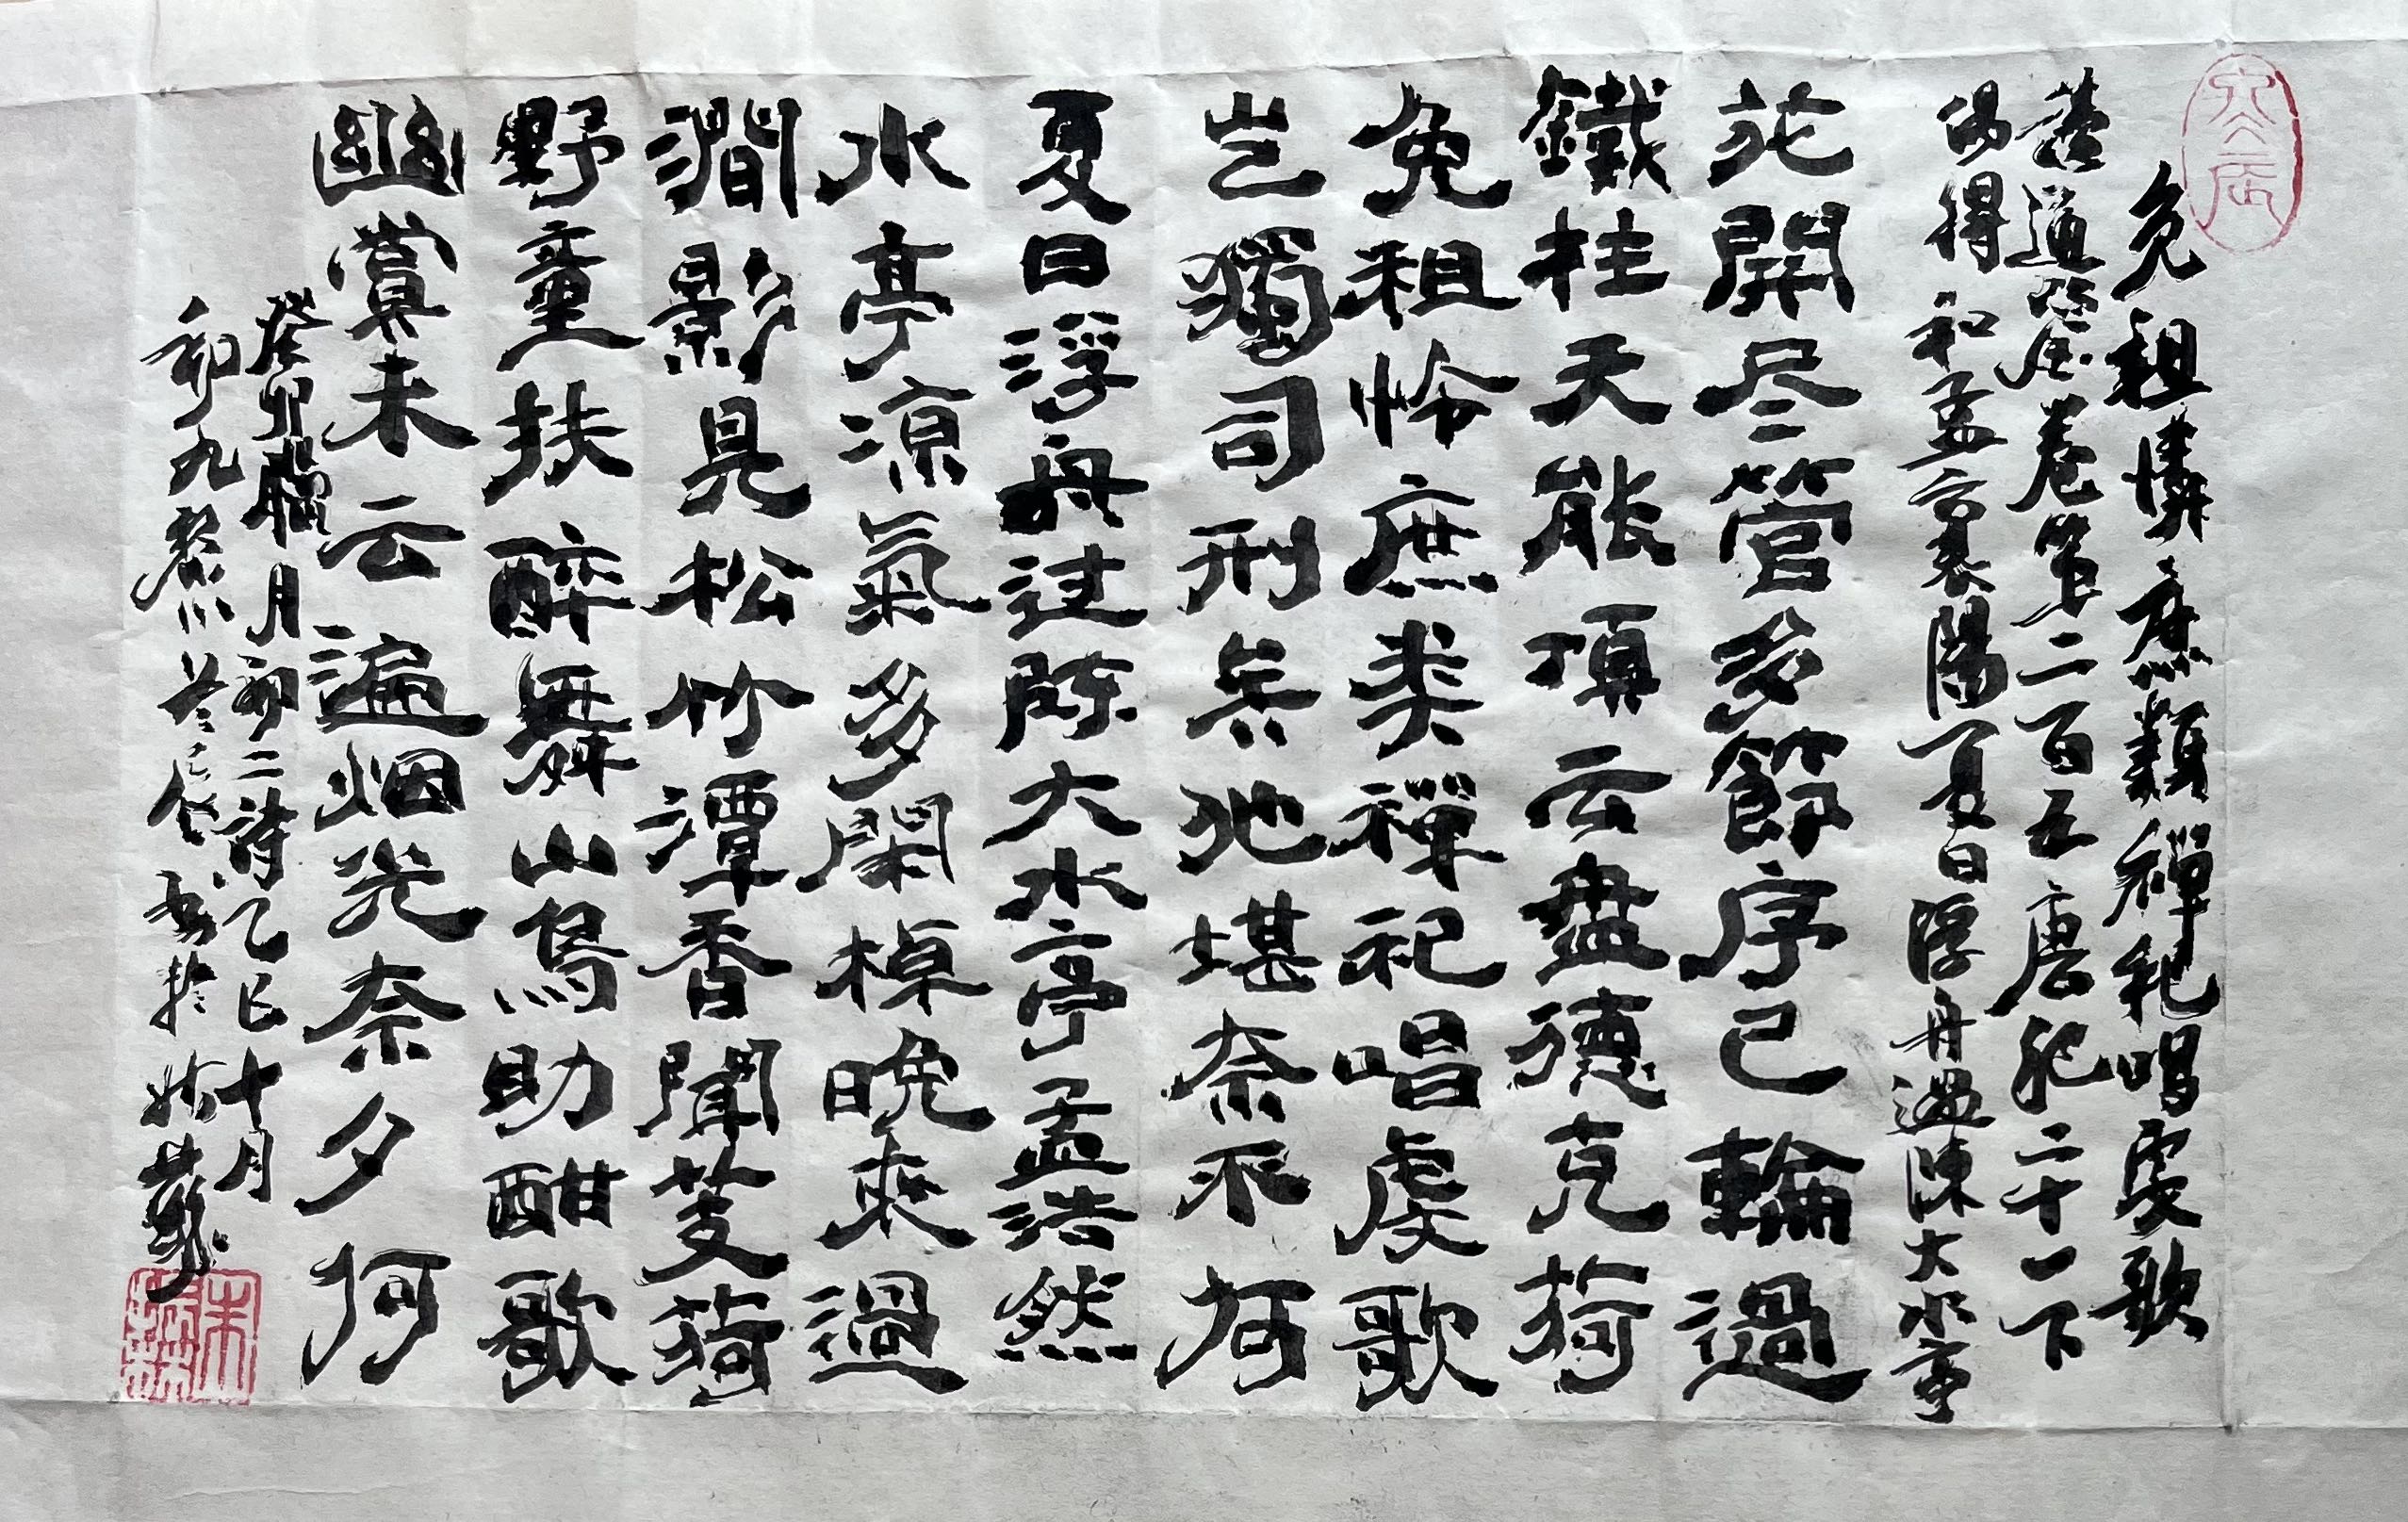 免租憐庶類禪祀唱宴歌
卷第二百五唐紀二十一下
得和孟襄陽夏日浮舟過陳大水亭
花開尽管多節序已輪過
鐵柱天能頂云盘德克荷
免租怜庶类禪祀唱虔歌
岂獨司刑兵弛堪奈不何
夏日浮舟过陈大水亭孟浩然
水亭凉氣多閑棹晚來過
澗影見松竹潭香聞芰荷
野童扶醉舞山鳥助酣歌
幽賞未云遍烟光奈夕何
癸卯臘月初二詩乙巳十月
初九